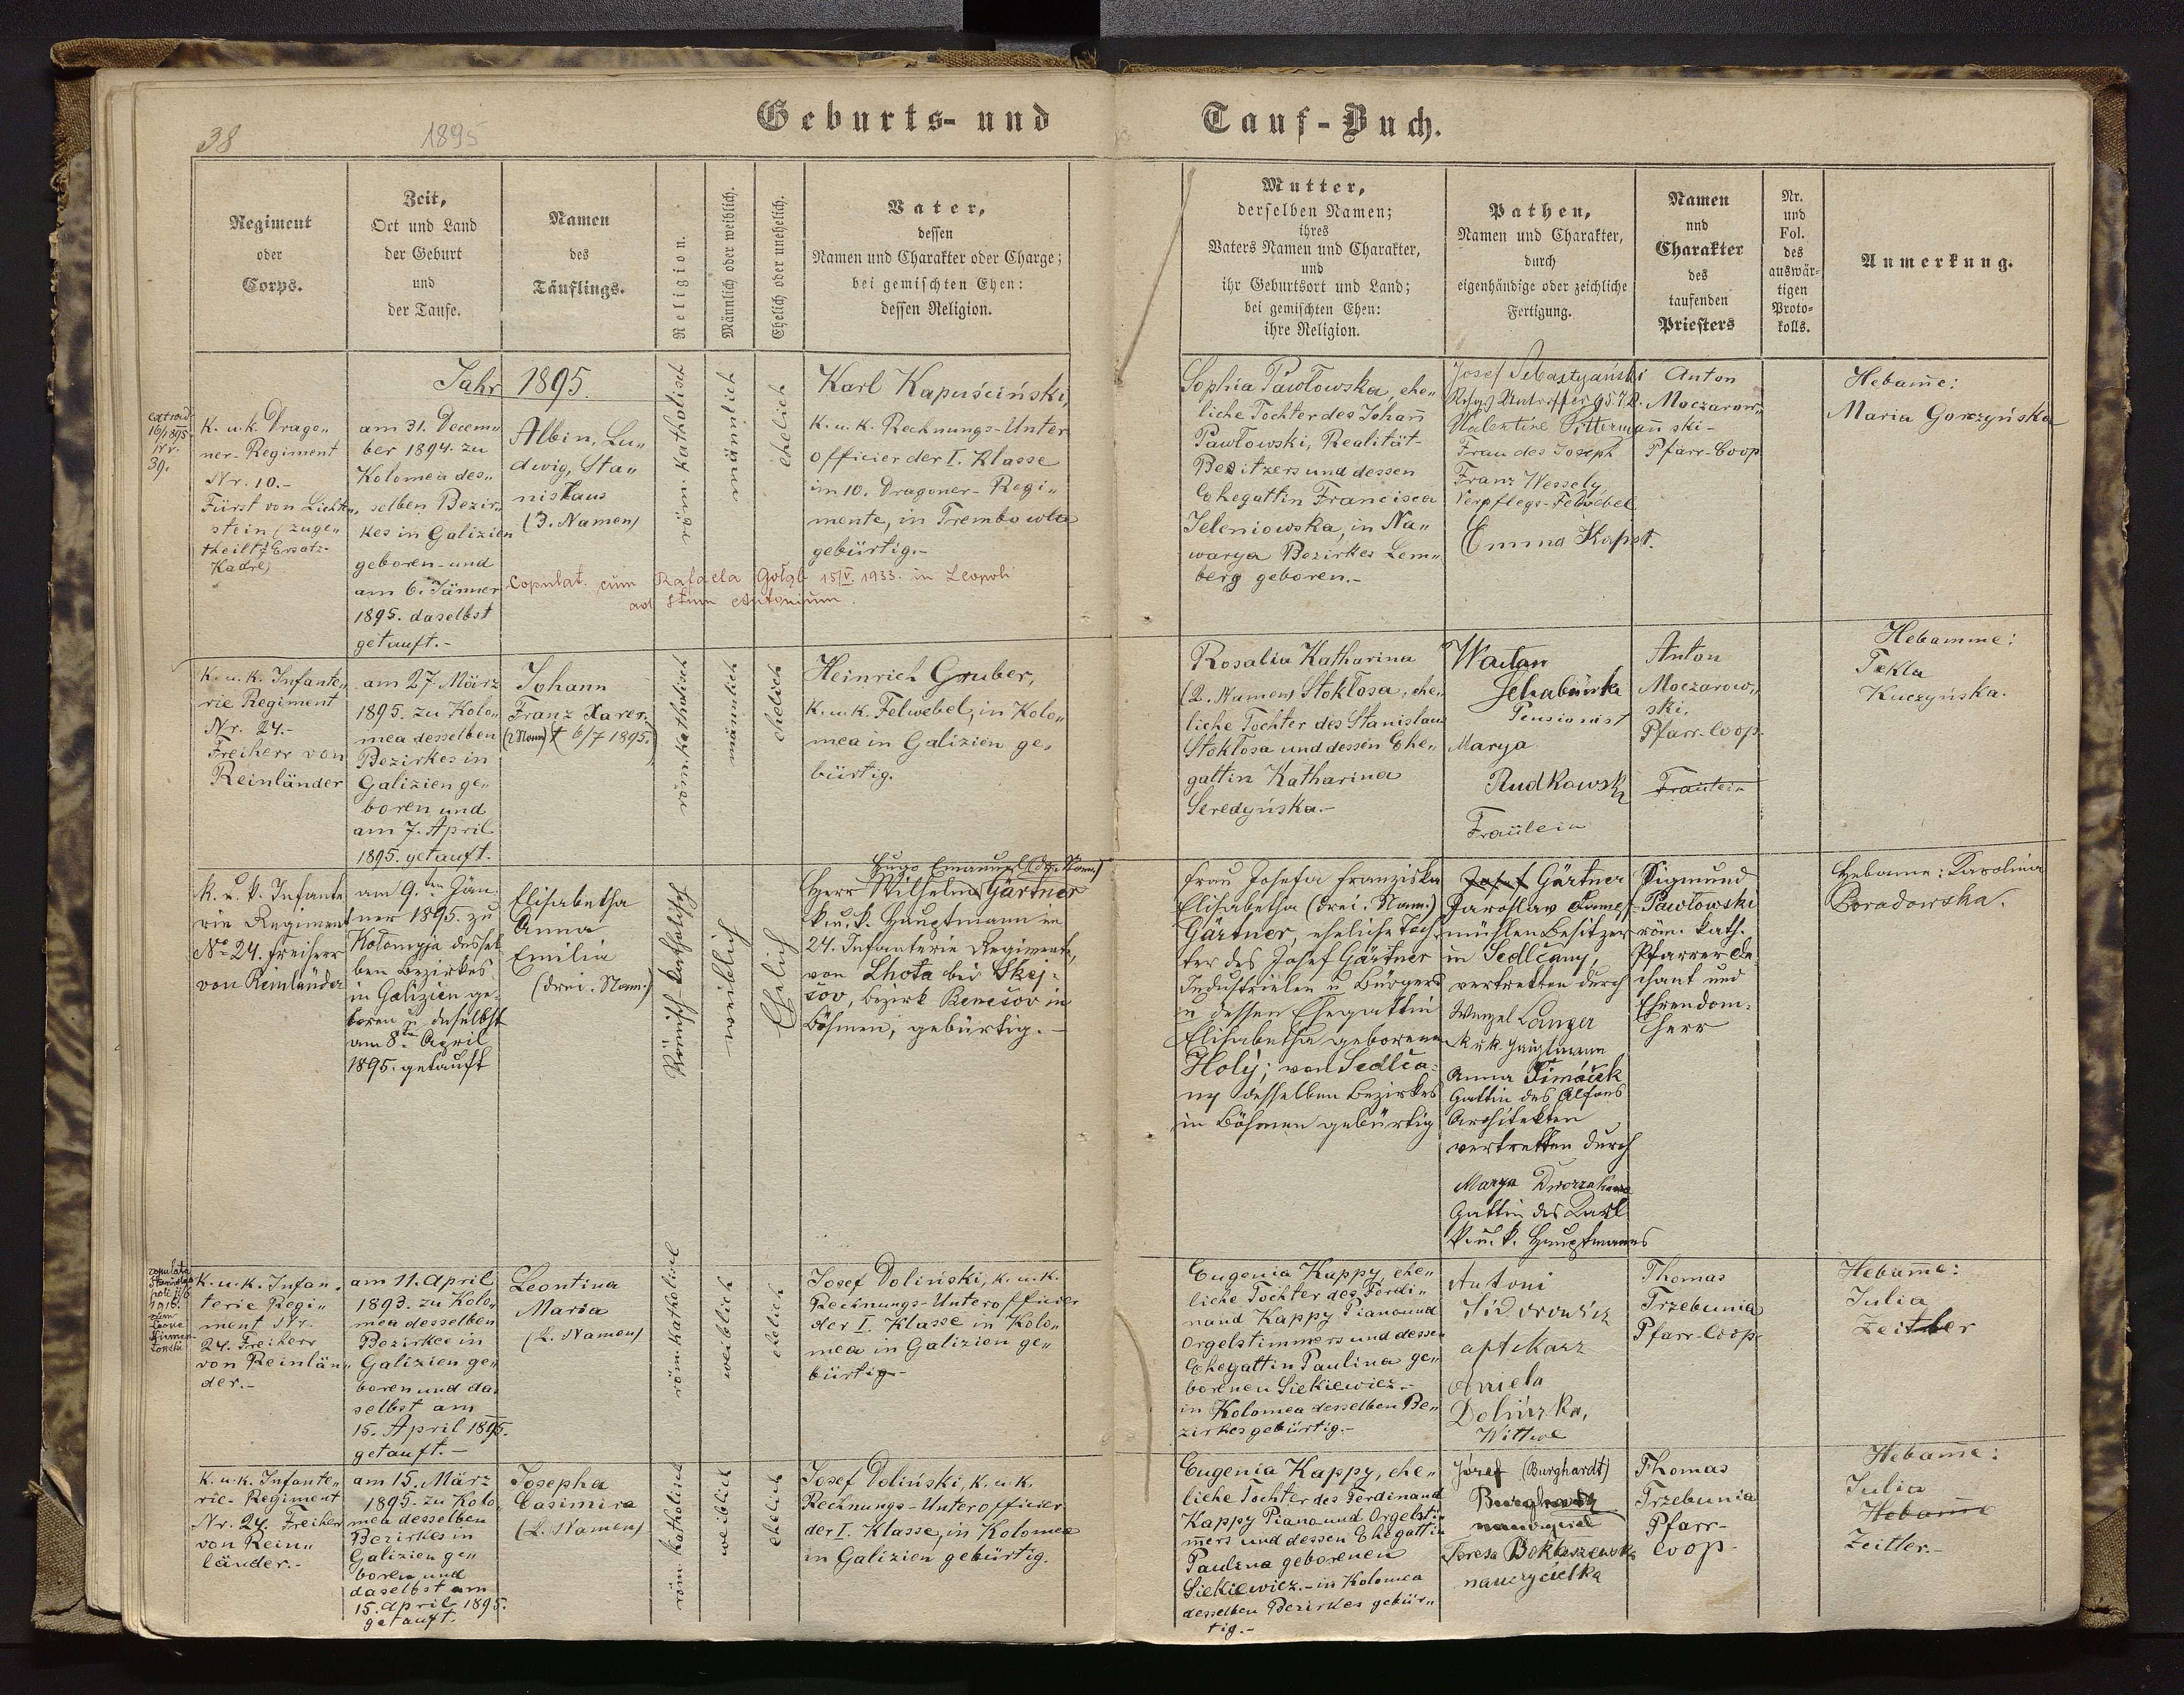 Geburts- und Tauf-Buch.
38
1895
Regiment
oder
Corps.
Zeit,
Ort und Land
der Geburt
und
der Taufe.
Namen
des
Täuflings.
Religion.
Männlich oder weiblich.
Ehelich oder unehelich.
Vater,
dessen
Namen und Charakter oder Charge;
bei gemischten Ehen:
dessen Religion.
Mutter,
derselben Namen;
ihres
Vaters Namen und Charakter,
und
ihr Geburtsort und Land;
bei gemischten Ehen:
ihre Religion.
Pathen,
Namen und Charakter,
durch
eigenhändige oder zeichliche
Fertigung.
Namen
und
Charakter
des
taufenden
Priesters
Nr.
und
Fol.
des
auswär-
tigen
Proto-
kolls.
Anmerkung.
Jahr 1895.
16/1 1895
Nr.
39.
K. u. k. Drago„
ner-Regiment
Nr. 10.-
Fürst von Lichten„
stein (zuge„
theilt z. Ersatz-
Kadre)
am 31. Decem„
ber 1894. zu
Kolomea des„
selben Bezir„
kes in Galizien
geboren und
am 6. Jänner
1895. daselbst
getauft.-
Albin, Lu„
dwig, Sta„
nislaus
(3. Namen)
röm. katholisch
männlich
ehelich
Karl Kapuściński,
K. u. k. Rechnungs-Unter
officier der I. Klasse
im 10. Dragoner-Regi„
mente, in Trembowla
gebürtig.-
Copulat. cum Rafaela Gołąb 15/V. 1933. in Leopoli
ad Stum Antonium.
Sophia Pawłowska, ehe„
liche Tochter des Johan̄
Pawłowski, Realität-
Besitzers und dessen
Ehegattin Francisca
Jeleniowska, in Na„
warya Bezirkes Lem„
berg geboren.-
Josef Sebastyański
Valentine Sitterman̄
Frau des Joseph
Franz Wessely
Verpflegs-Felwebel
Emma Kapst.
Anton
Moczarow„
ski-
Pfarr-Coop
Hebam̄e:
Maria Gorczyńska
K. u. k. Infante„
rie Regiment
Nr. 24.-
Freiherr von
Reinländer
am 27. März
1895. zu Kolo„
mea desselben
Bezirkes in
Galizien ge„
boren und
am 7. April
1895. getauft.
Johann
Franz Xaver.
(2 Nam) † 6/7 1895.
röm. katholisch
männlich
ehelich
Heinrich Gruber,
K. u. k. Felwebel, in Kolo„
mea in Galizien ge„
bürtig.
Rosalia Katharina
(2. Namen) Stokłosa, ehe„
liche Tochter des Stanislaus
Stokłosa und dessen Ehe„
gattin Katharina
Seredyńska.-
Pensionist
Marya
Rudkowska
Fraülein
Anton
Moczarow„
ski,
Pfarr-Coop.
Fraülein
Hebamme:
Tekla
Kuczyńska.
K. u. k. Infante
rie Regiment
No 24. Freiherr
von Reinländer
am 9.ten Jän
ner 1895. zu
Kołomyja dessel
ben Bezirkes
in Galizien ge-
boren u. daselbst
am 8.ten April
1895. getauft
Elisabetha
Anna
Emilie
(drei. Nam:)
Römisch katholisch
weiblich
Ehelich
Hugo Emanuel (drei Nam)
Herr Wilhelm Gärtner
k. u. k. Hauptmann im
24. Infanterie Regimente,
von Lhota bei Skej-
šov, Bezirk Benešov in
Böhmen, gebürtig.-
Frau Josefa Franziska
Elisabetha (drei. Nam:)
Gärtner, eheliche Toch
ter des Josef Gärtner
Industrielen u. Bürgers
u dessen Ehegattin
Elisabetha geborene
Holý; von Sedlča-
ny desselben Bezirkes
in Böhmen gebürtig
Josef Gärtner
Jaroslav Dampf-
mühlen Besitzer
in Sedlčany,
vertretten durch
Wenzel Langer
k. u. k. Hauptmann
Anna Šimáček
Gattin des Alfons
Architekten
vertretten durch
Marya Dworzakowa
Gattin des Karl
k. u. k. Hauptmanns
Sigmund
Pawłowski
röm. kath.
Pfarrer De-
chant und
Ehrendom-
herr
Hebame: Karolina
Borodowska.
copulata
1916.
K. u. k. Infan„
terie Regi„
ment Nr.
24. Freiherr
von Reinlän„
der.-
am 11. April
1893. zu Kolo„
mea desselben
Bezirkes in
Galizien ge„
boren und da„
selbst am
15. April 1895.
getauft.-
Leontina
Maria
(2. Namen)
röm. katholisch
weiblich
ehelich
Josef Doliński, K. u. k.
Rechnungs-Unterofficier
der I. Klasse in Kolo„
mea in Galizien ge„
bürtig.-
Eugenia Kappy, ehe„
liche Tochter des Ferdi„
nand Kappy Piano und
Orgelstimmers und dessen
Ehegattin Paulina ge„
borenen Siekiewicz.-
in Kolomea desselben Be„
zirkes gebürtig.-
Antoni
Sidorowicz
aptekarz
Aniela
Dolińska,
Wittwe
Thomas
Trzebunia
Pfarr-Coop.
Hebam̄e:
Julia
Zeitler
K. u. k. Infante„
rie-Regiment
Nr. 24. Freiherr
von Rein„
länder.-
am 15. März
1895. zu Kolo„
mea desselben
Bezirkes in
Galizien ge„
boren und
daselbst am
15. April 1895.
getauft.
Josepha
Casimira
(2. Namen)
röm. katholisch
weiblich
ehelich
Josef Doliński, K. u. k.
Rechnungs-Unterofficier
der I. Klasse, in Kolomea
in Galizien gebürtig.
Eugenia Kappy, ehe„
liche Tochter des Ferdinand
Kappy Piano und Orgelsti„
mers und dessen Ehegattin
Paulina geborenen
Siekiewicz.- in Kolomea
desselben Bezirkes gebür„
tig.-
Józef (Burghardt)
Burghardt
nauczyciel
Teresa
nauczycielka
Thomas
Trzebunia
Pfarr-
Coop-
Hebam̄e:
Julia
Hebam̄e
Zeitler.-